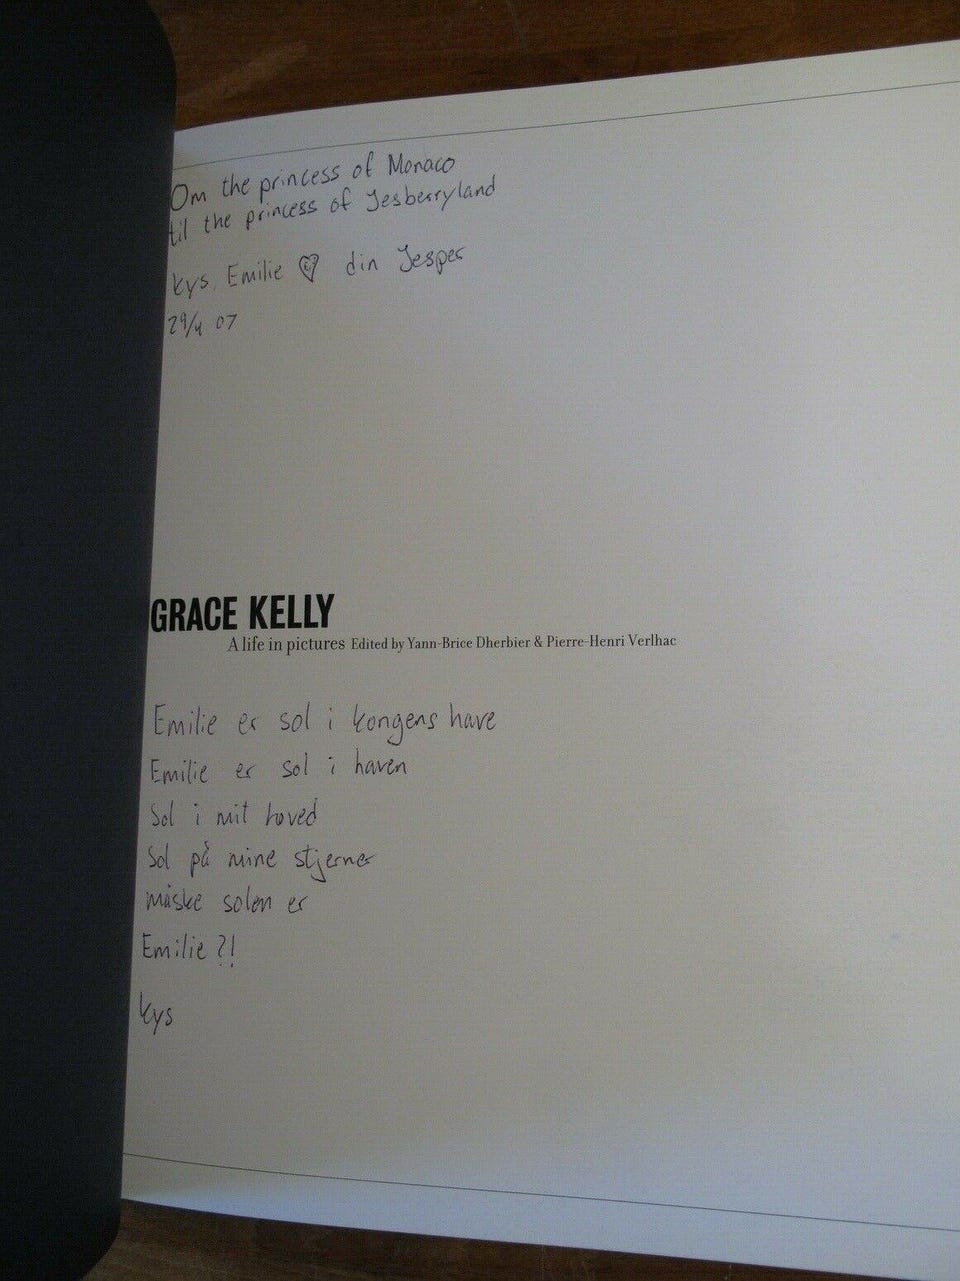 Om the princess of Monaco
til the princess of Jesberryland
kys, Emilie din Jesper
29/4 07
GRACE KELLY
A life in pictures Edited by Yann-Brice Dherbier & Pierre-Henri Verlhac
Emilie er sol i kongens have
Emilie er sol i haven
Sol i mit hoved
Sol på mine stjerner
måske solen er
Emilie?!
kys